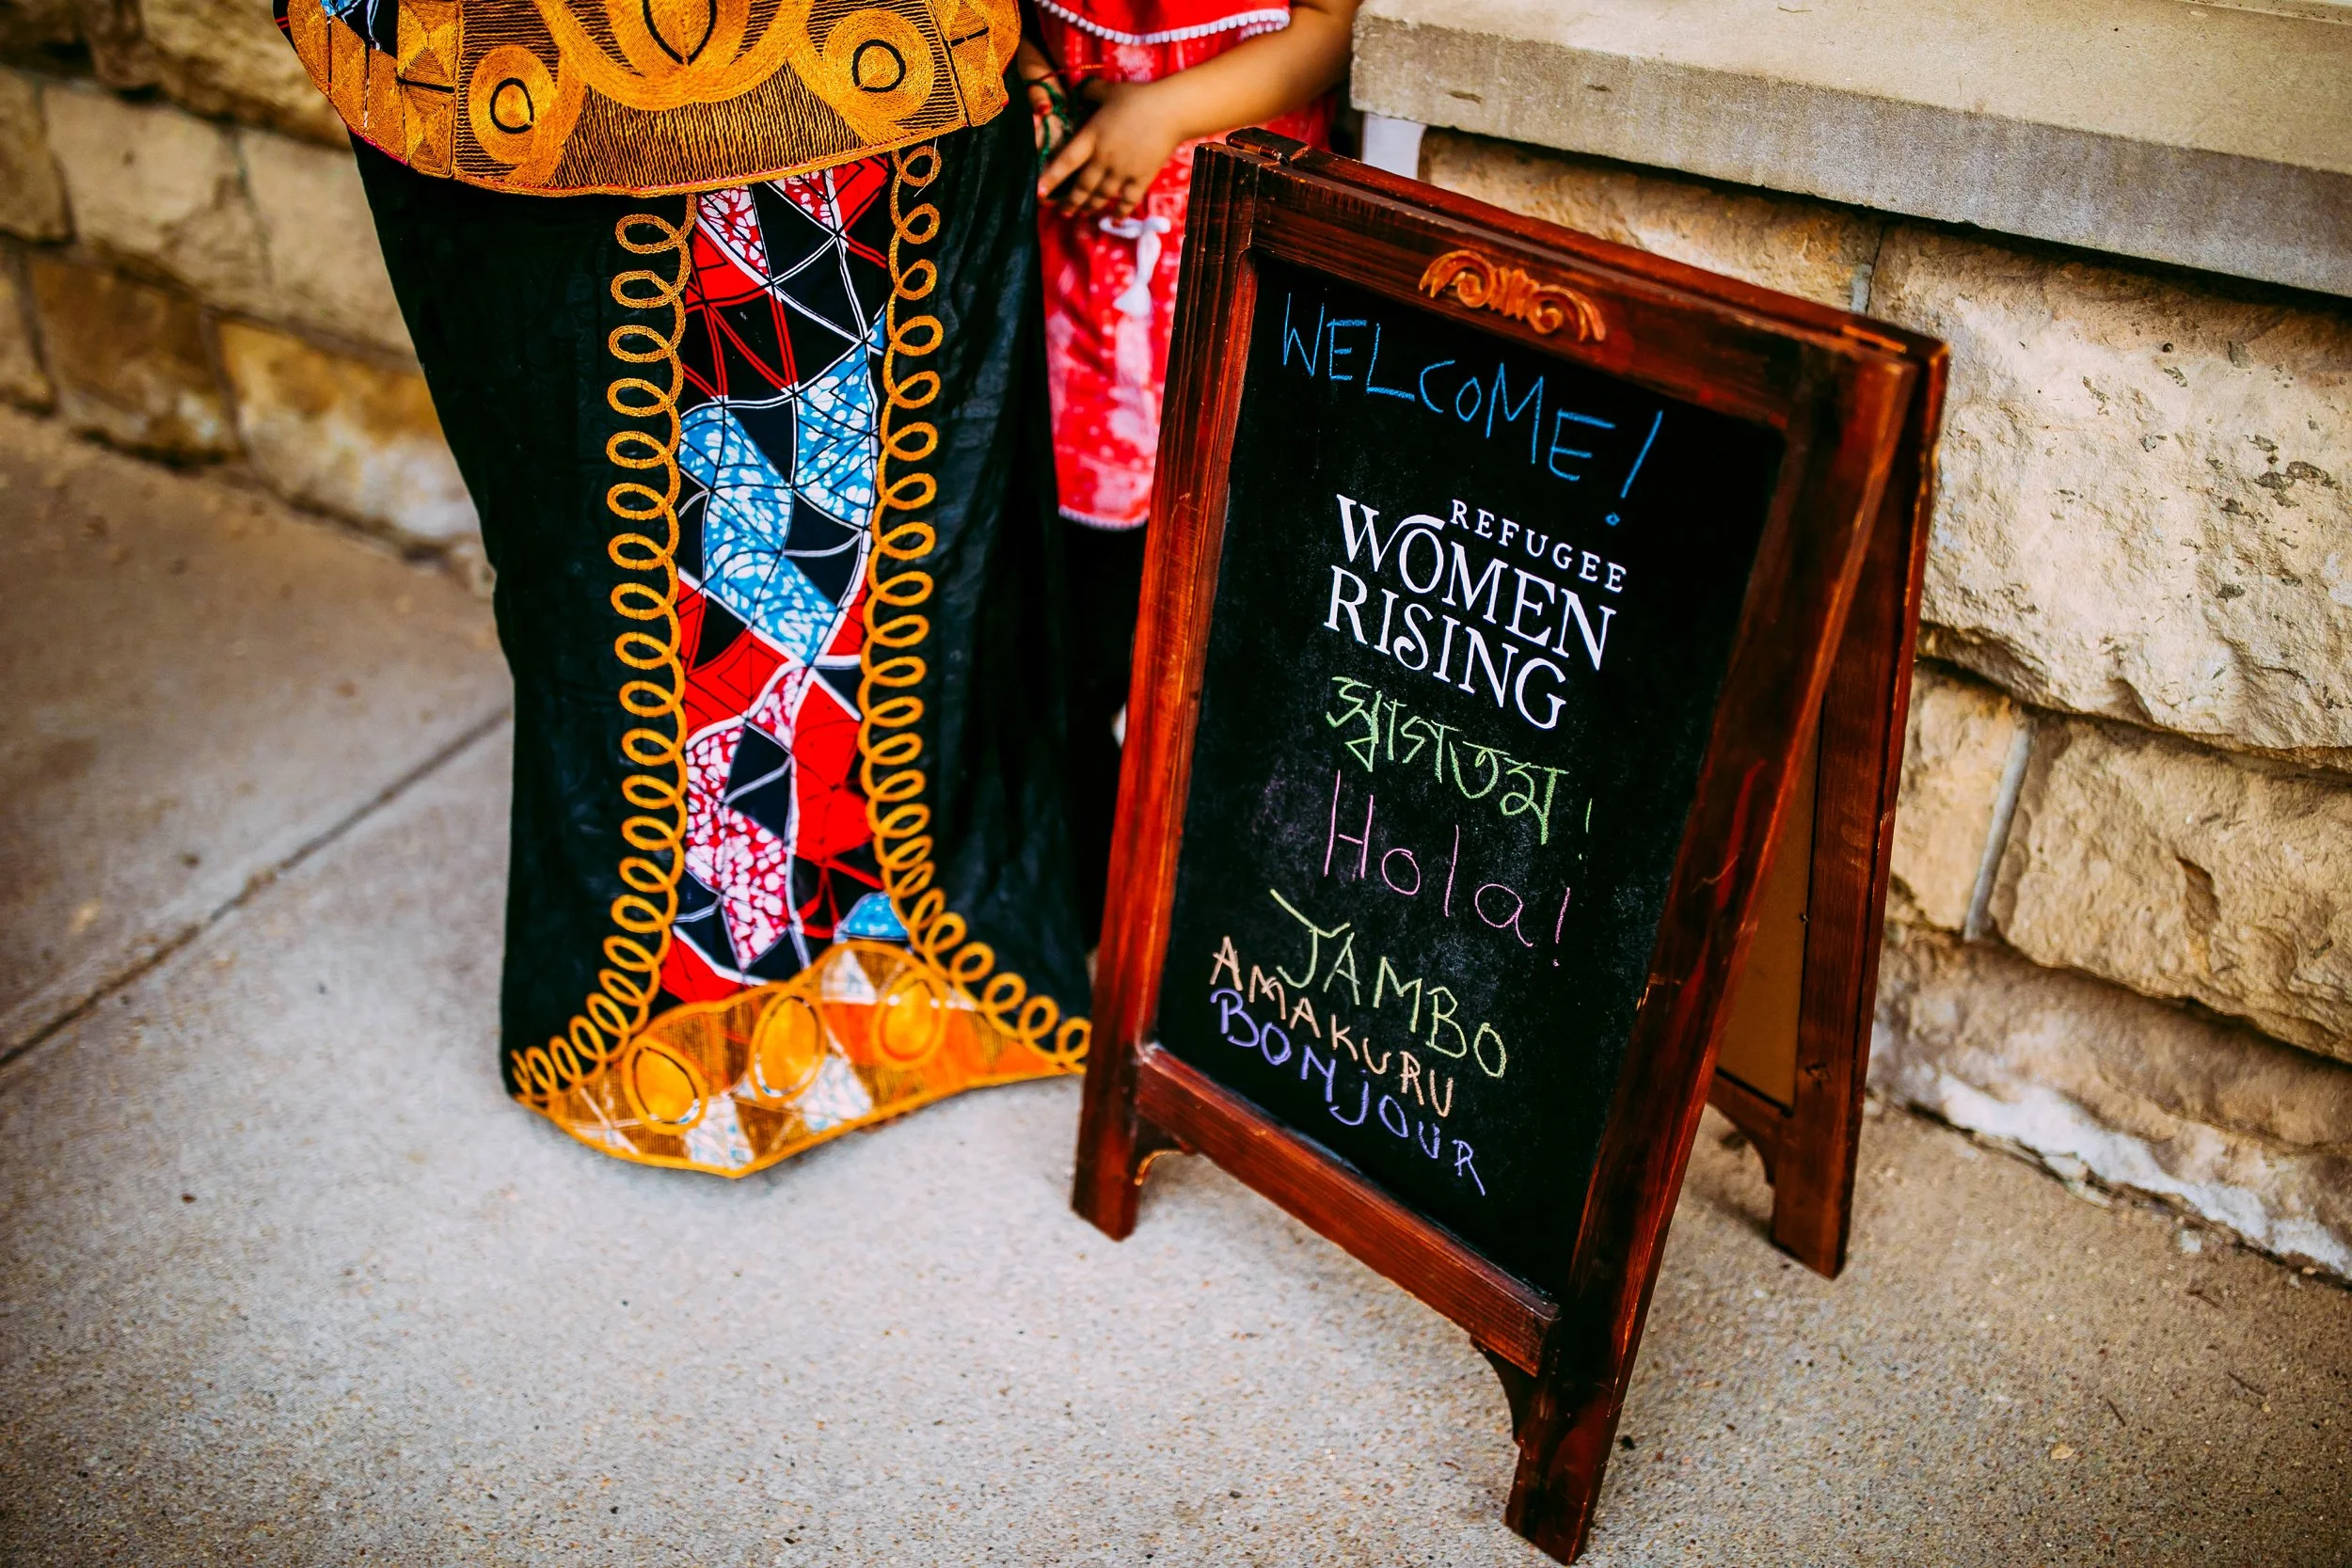 WELCOME!
REFUGEE
WOMEN
RISING
স্বাগতম!
Hola!
JAMBO
AMAKURU
BONJOUR